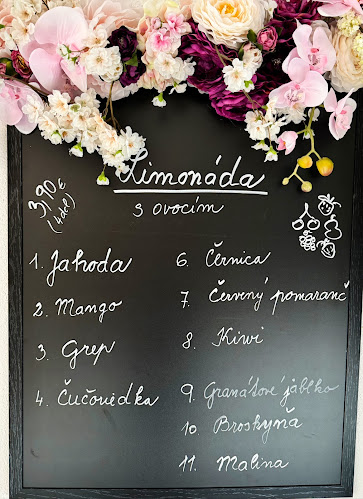 Limonáda
s ovocím
3,90 €
(4 dcl)
1. Jahoda
2. Mango
3. Grep
4. Čučoriedka
6. Černica
7. Červený pomaranč
8. Kiwi
9. Granátové jablko
10. Broskyňa
11. Malina